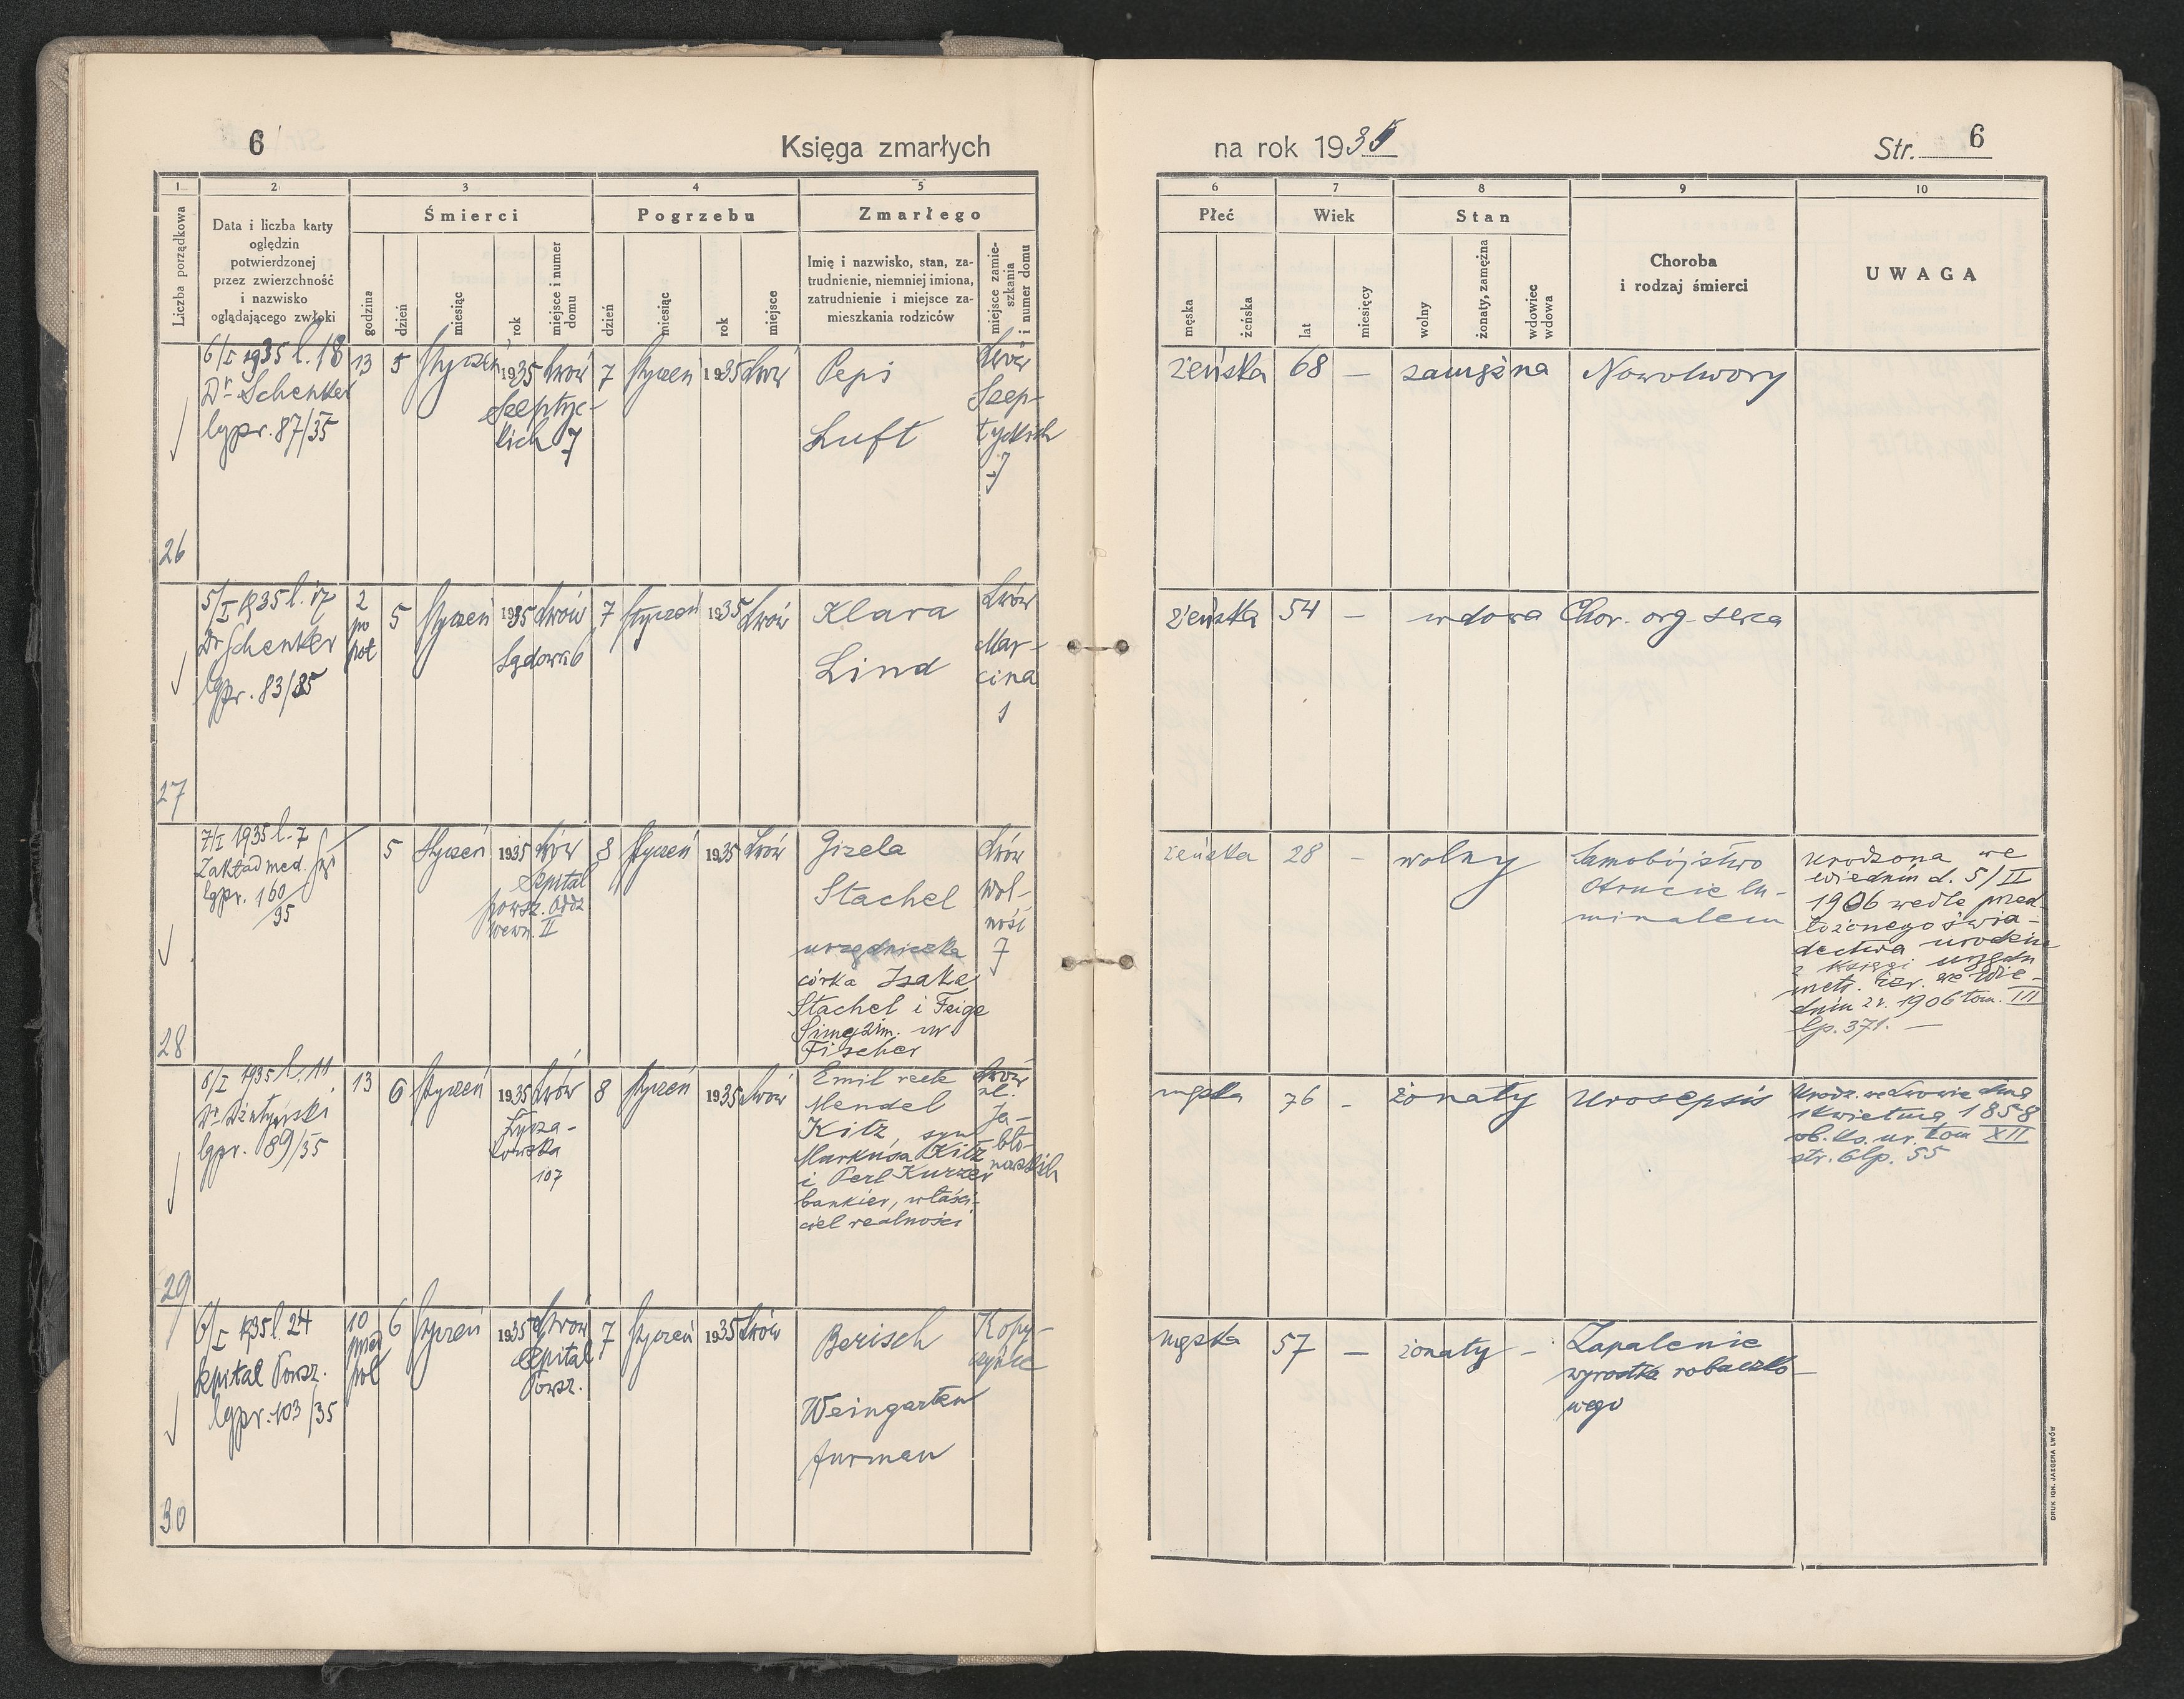 6
Księga zmarłych
1
2
3
4
5
Liczba porządkowa
Data i liczba karty
oględzin
potwierdzonej
przez zwierzchność
i nazwisko
oglądającego zwłoki
Śmierci
godzina
dzień
miesiąc
rok
miejsce i numer
domu
Pogrzebu
dzień
miesiąc
rok
miejsce
Zmarłego
Imię i nazwisko, stan, za-
trudnienie, niemniej imiona,
zatrudnienie i miejsce za-
mieszkania rodziców
miejsce zamie-
szkania
i numer domu
26
6/I 1935 l. 18
Dr Schenker
lgpr. 87/35
13
5
styczeń
1935
Lwów
Szeptyc-
kich 7
7
styczeń
1935
Lwów
Pepi
Luft
Lwów
Szep-
tyckich
7
27
5/I 1935 l. 17
Dr Schenker
lgpr. 83/35
2
po
poł
5
styczeń
1935
Lwów
Sądowa 6
7
styczeń
1935
Lwów
Klara
Lind
Lwów
Mar-
cina
1
28
7/I 1935 l. 7
Zakład med.
lgpr. 160
/35
5
styczeń
1935
Lwów
Szpital
powsz. oddz
wewn. II
8
styczeń
1935
Lwów
Gizela
Stachel
urzędniczka
córka Izaka
Stachel i Feige
2im. ur
Fischer
Lwów
Wol-
ność
7
29
8/I 1935 l. 11
Dr
lgpr. 89/35
13
6
styczeń
1935
Lwów
Łycza-
kowska
107
8
styczeń
1935
Lwów
Emil recte
Mendel
Kitz, syn
Markusa Kitz
i Perl Kurzer
bankier, właści-
ciel realności
Lwów
ul.
Ja-
bło-
nowskich
30
6/I 1935 l. 24
Szpital Powsz.
lgpr. 103/35
10
przed
poł
6
styczeń
1935
Lwów
Szpital
Powsz.
7
styczeń
1935
Lwów
Berisch
Weingarten
furman
Kopy-
czyńce
na rok 1935
Str. 6
6
7
8
9
10
Płeć
męska
żeńska
Wiek
lat
miesięcy
Stan
wolny
żonaty, zamężna
wdowiec
wdowa
Choroba
i rodzaj śmierci
UWAGA
żeńska
68
—
zamężna
Nowotwory
żeńska
54
—
wdowa
Chor. org. serca
żeńska
28
-
wolny
Samobójstwo
Otrucie lu-
minalem
urodzona we
Wiedniu d. 5/II
1906 wedle przed
łożonego świa-
dectwa urodzin
z księgi urzędu
metr. izr. we Wie-
dniu z r. 1906 tom. III
lp. 371. —
męska
76
-
żonaty
Urosepsis
Urodz. we Lwowie dnia
1 kwietnia 1858
ob. ks. ur. tom XII
str. 6 lp. 55
męska
57
—
żonaty -
Zapalenie
wyrostka robaczko-
wego
DRUK IGN. JAEGERA LWÓW